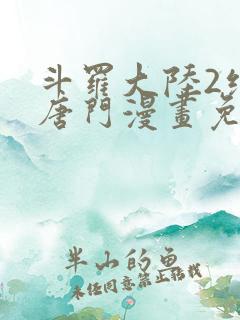 斗羅大陸2
唐門漫畫免
半山的魚
未经同意禁止转载